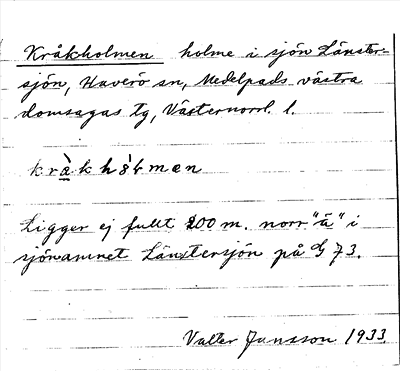 Kråkholmen holme i sjön Länster-
sjön, Haverö sn, Medelpads västra
domsagas tg, Västernorrl. l.
kràkhòɬmen
Ligger ej fullt 200 m. norr "ä" i
sjönamnet Länstersjön på G 73.
Valter Jansson 1933